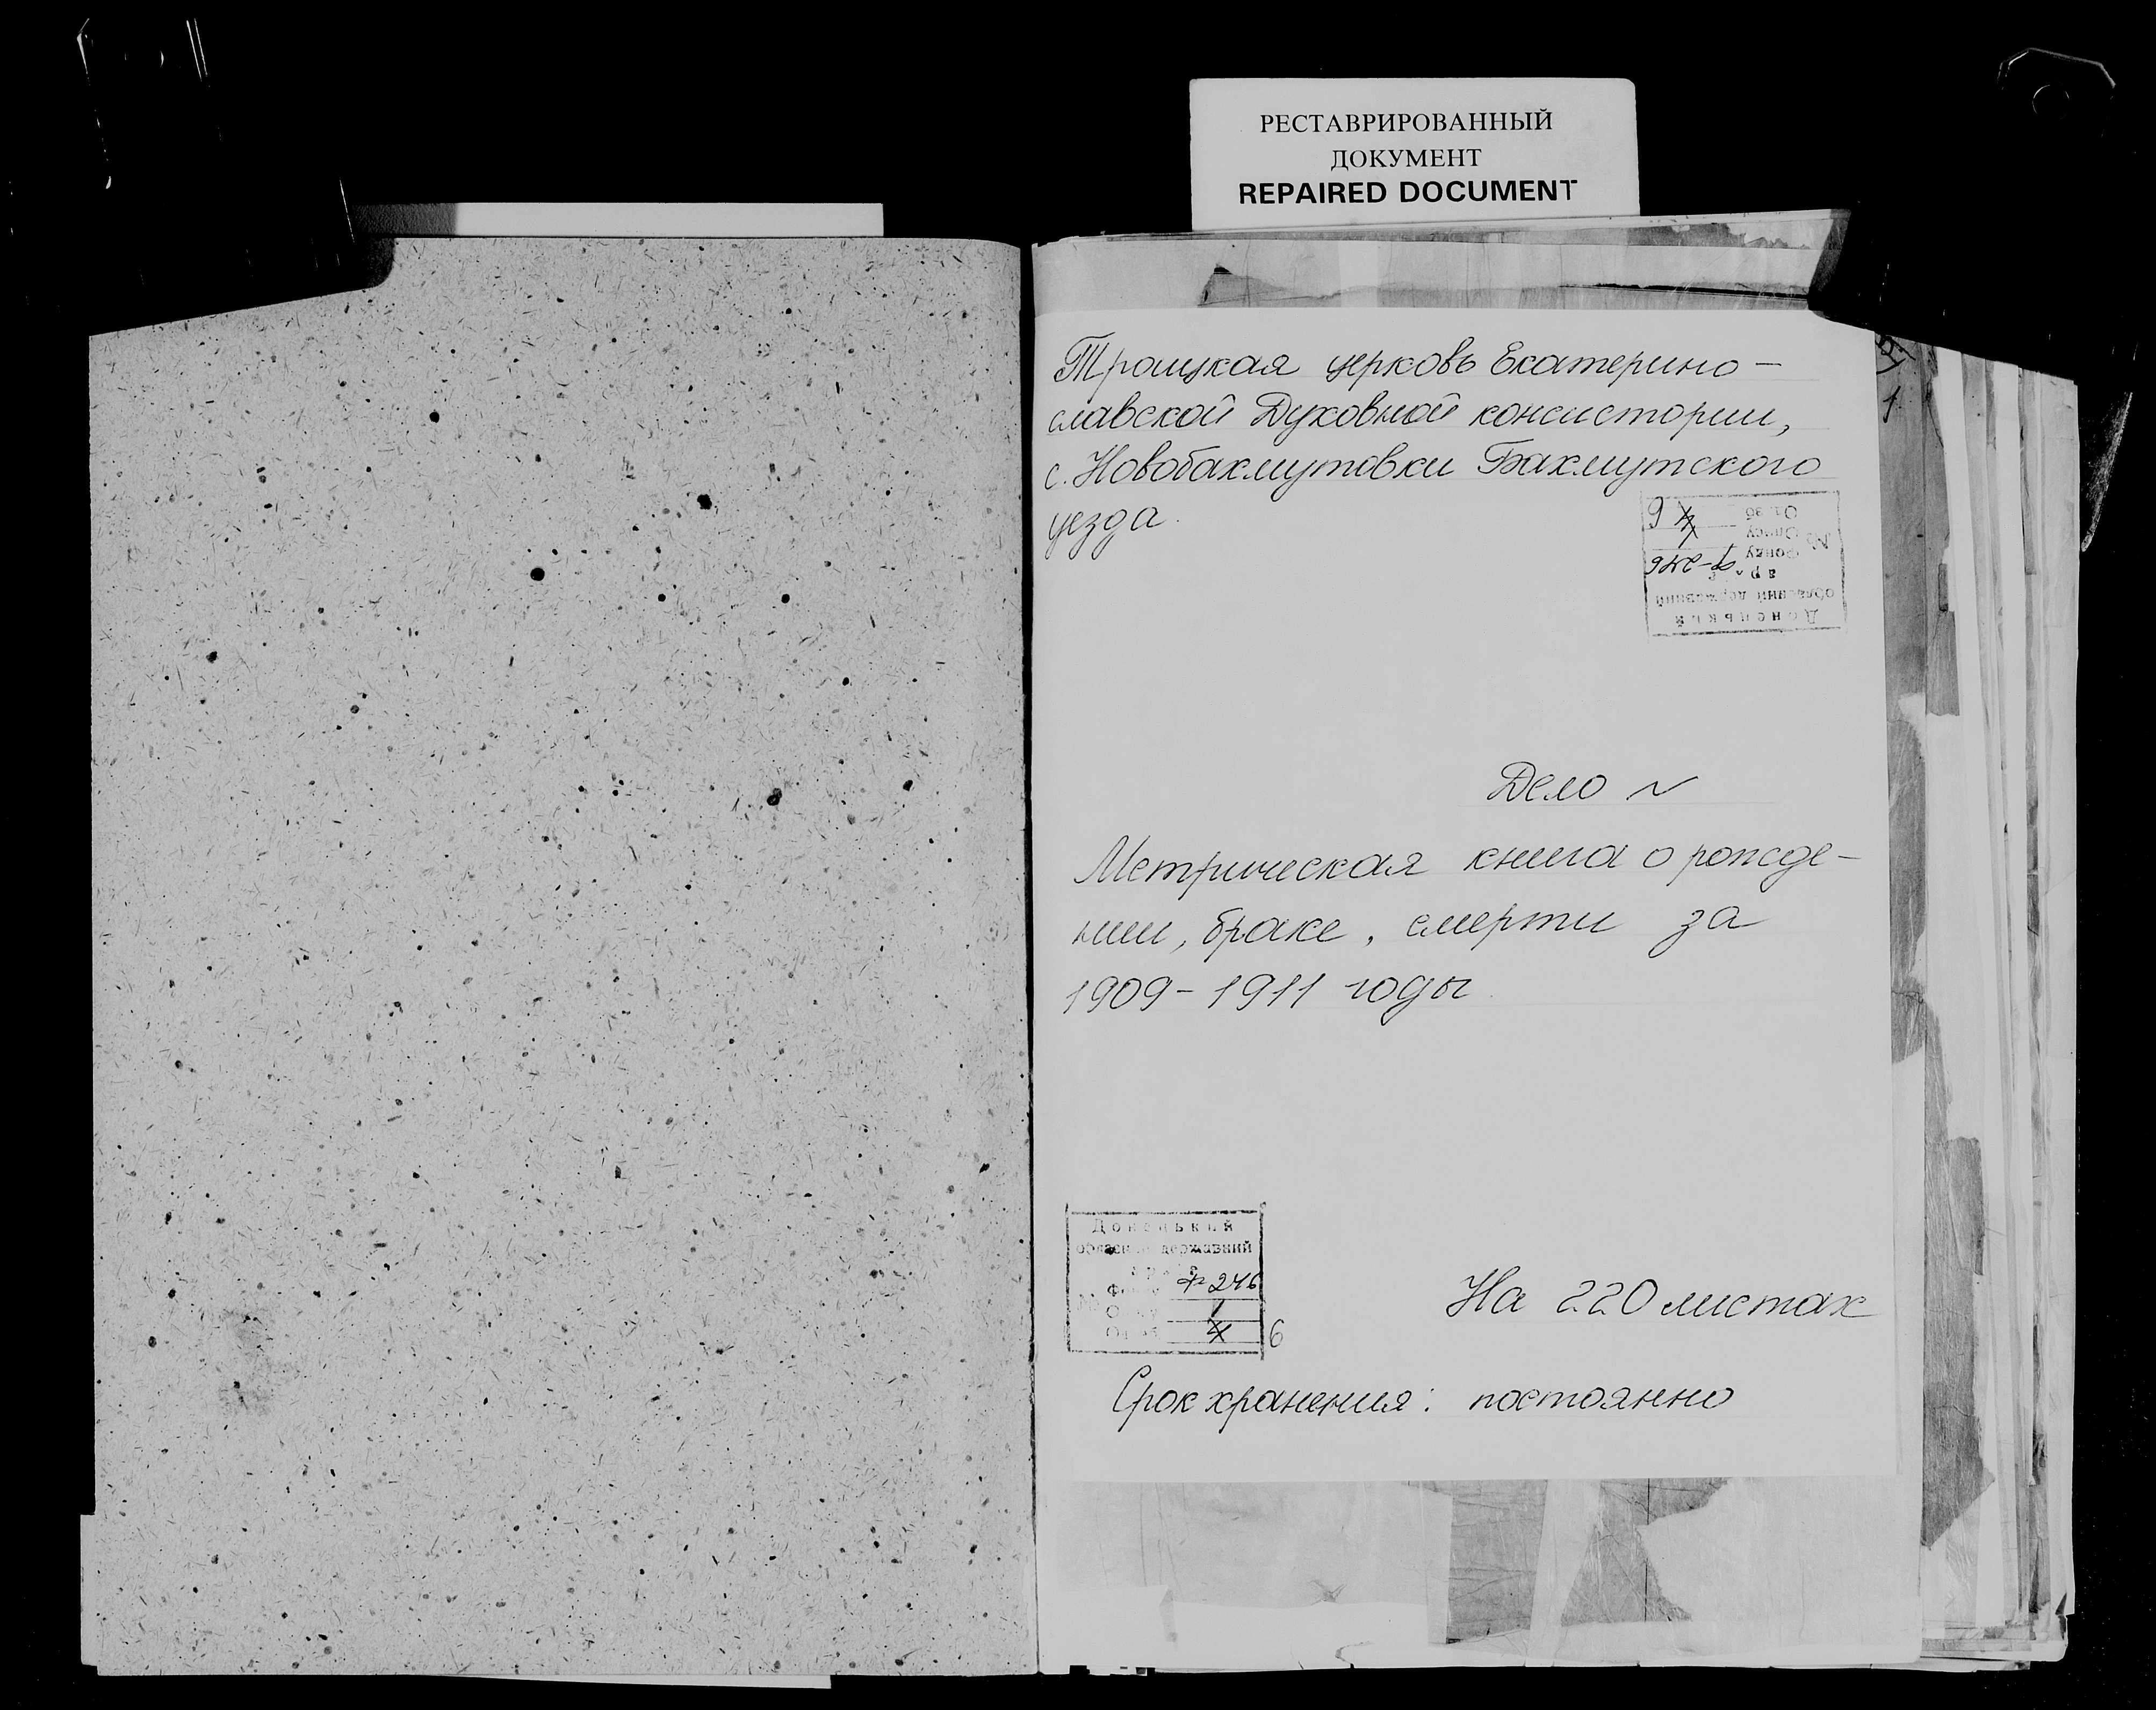 РЕСТАВРИРОВАННЫЙ
ДОКУМЕНТ
REPAIRED DOCUMENT
Троицкая церковь Екатерино-
славской Духовной консистории,
с. Новобахмутовки Бахмутского
уезда.
Донецький
обласний державний
Фонду
Опису
Дело №
Метрическая книга о рожде-
нии, браке, смерти за
1909-1911 годы
Донецький
обласний державний
Ф 246
1
6
На 220 листах
Срок хранения: постоянно
1